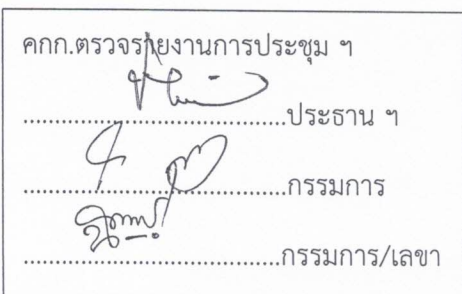 คกก.ตรวจรายงานการประชุม ฯ
....................................ประธาน ฯ
....................................กรรมการ
....................................กรรมการ/เลขา